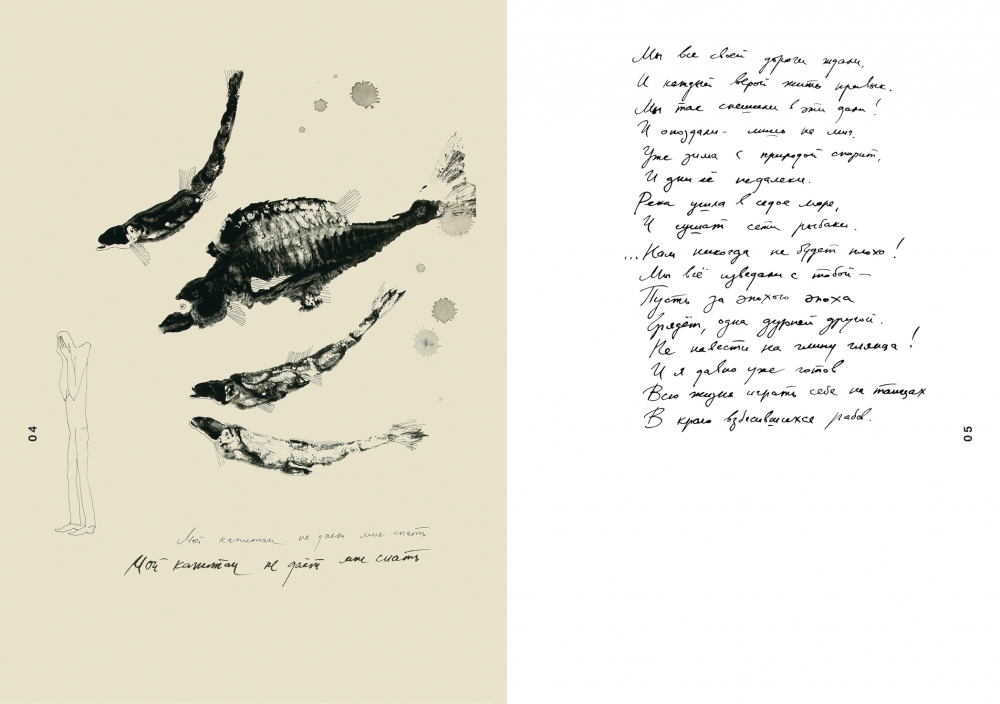 04
Мой капитан не дает мне спать
Мой капитан не даёт мне спать
Мы все своей дороги ждали,
И каждый верой жить привык.
Мы так спешили в эти дали!
И опоздали - лишь на миг.
Уже зима с природой спорит,
И дни её недалеки.
Река ушла в седое море,
И сушат сети рыбаки.
...Нам никогда не будет плохо!
Мы всё изведали с тобой —
Пусть за эпохою эпоха
Грядёт, одна дурней другой.
Не навести на глину глянца!
И я давно уже готов
Всю жизнь играть себе на танцах
В краю взбесившихся рабов.
05